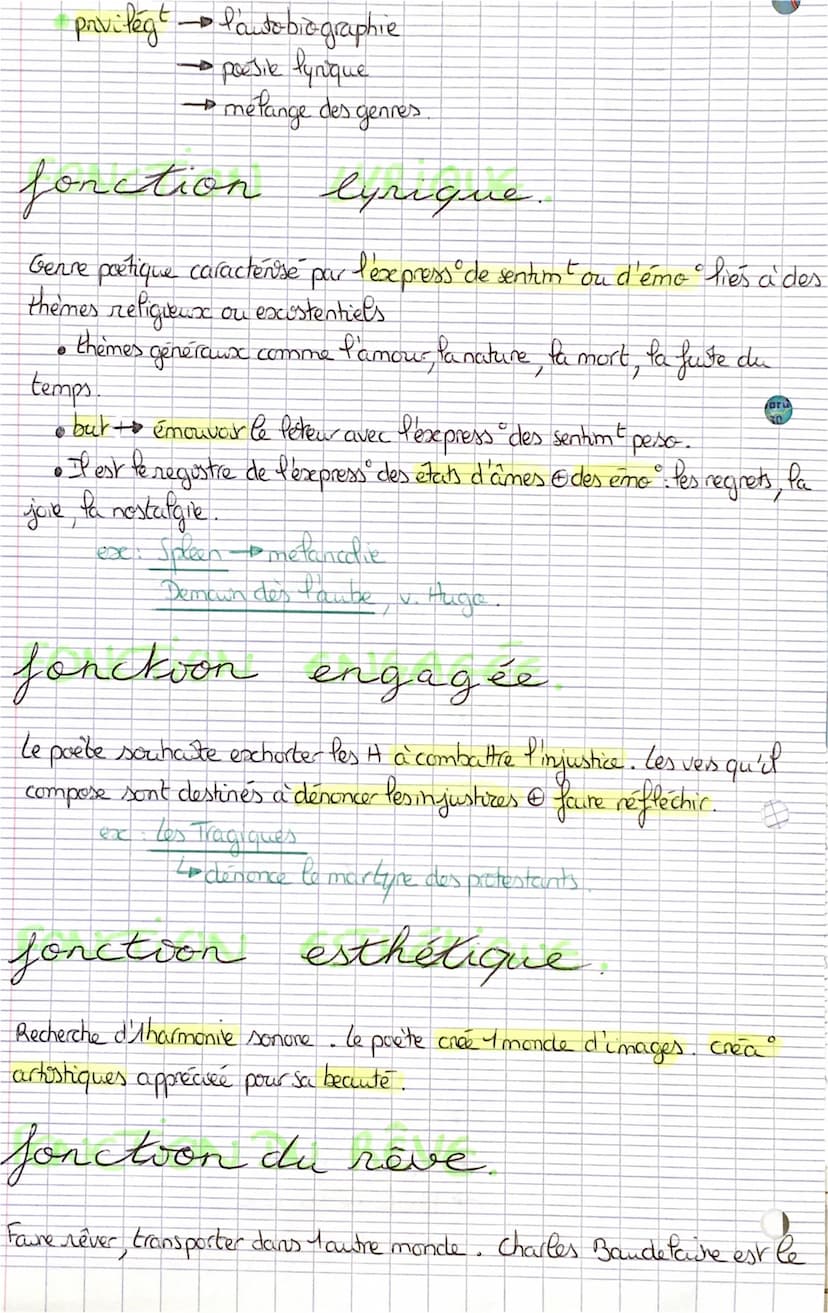 * privilégt → l'autobiographie
→ poésie lyrique
→ mélange des genres.
fonction lyrique.
Genre poétique caractérisé par l'express° de sentimt ou d'émo° liés à des
thèmes religieux ou existentiels
• thèmes généraux comme l'amour, la nature, la mort, la fuite du
temps.
• but → émouvoir le lecteur avec l'express° des sentimt perso.
• Il est le registre de l'express° des états d'âmes ⊕ des émo° : les regrets, la
joie, la nostalgie.
ex : Spleen → mélancolie
Demain dès l'aube, v. Hugo.
fonction engagée.
Le poète souhaite exhorter les H à combattre l'injustice. Les vers qu'il
compose sont destinés à dénoncer les injustices ⊕ faire réfléchir.
ex : Les Tragiques
↳ dénonce le martyre des protestants.
fonction esthétique.
Recherche d'1 harmonie sonore. Le poète créé 1 monde d'images. créa°
artistiques appréciée pour sa beauté.
fonction du rêve.
Faire rêver, transporter dans 1 autre monde. Charles Baudelaire est le